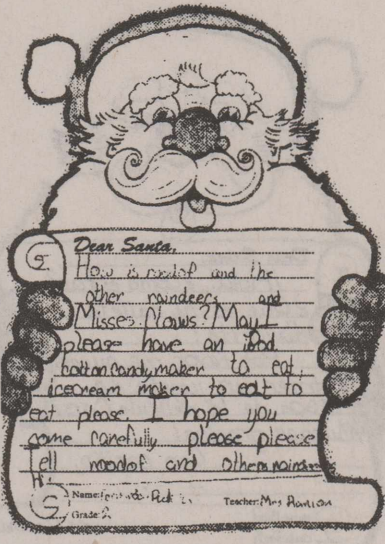 Dear Santa,
How is roodof and the
other raindeers and
Misses Clows? May I
please have an ipod,
cottoncandymaker to eat,
icecream maker to eat to
eat please. I hope you
come carefully please please
tell roodof and others raindeer
Hi.
Name: Teacher: Mrs
Grade: 2